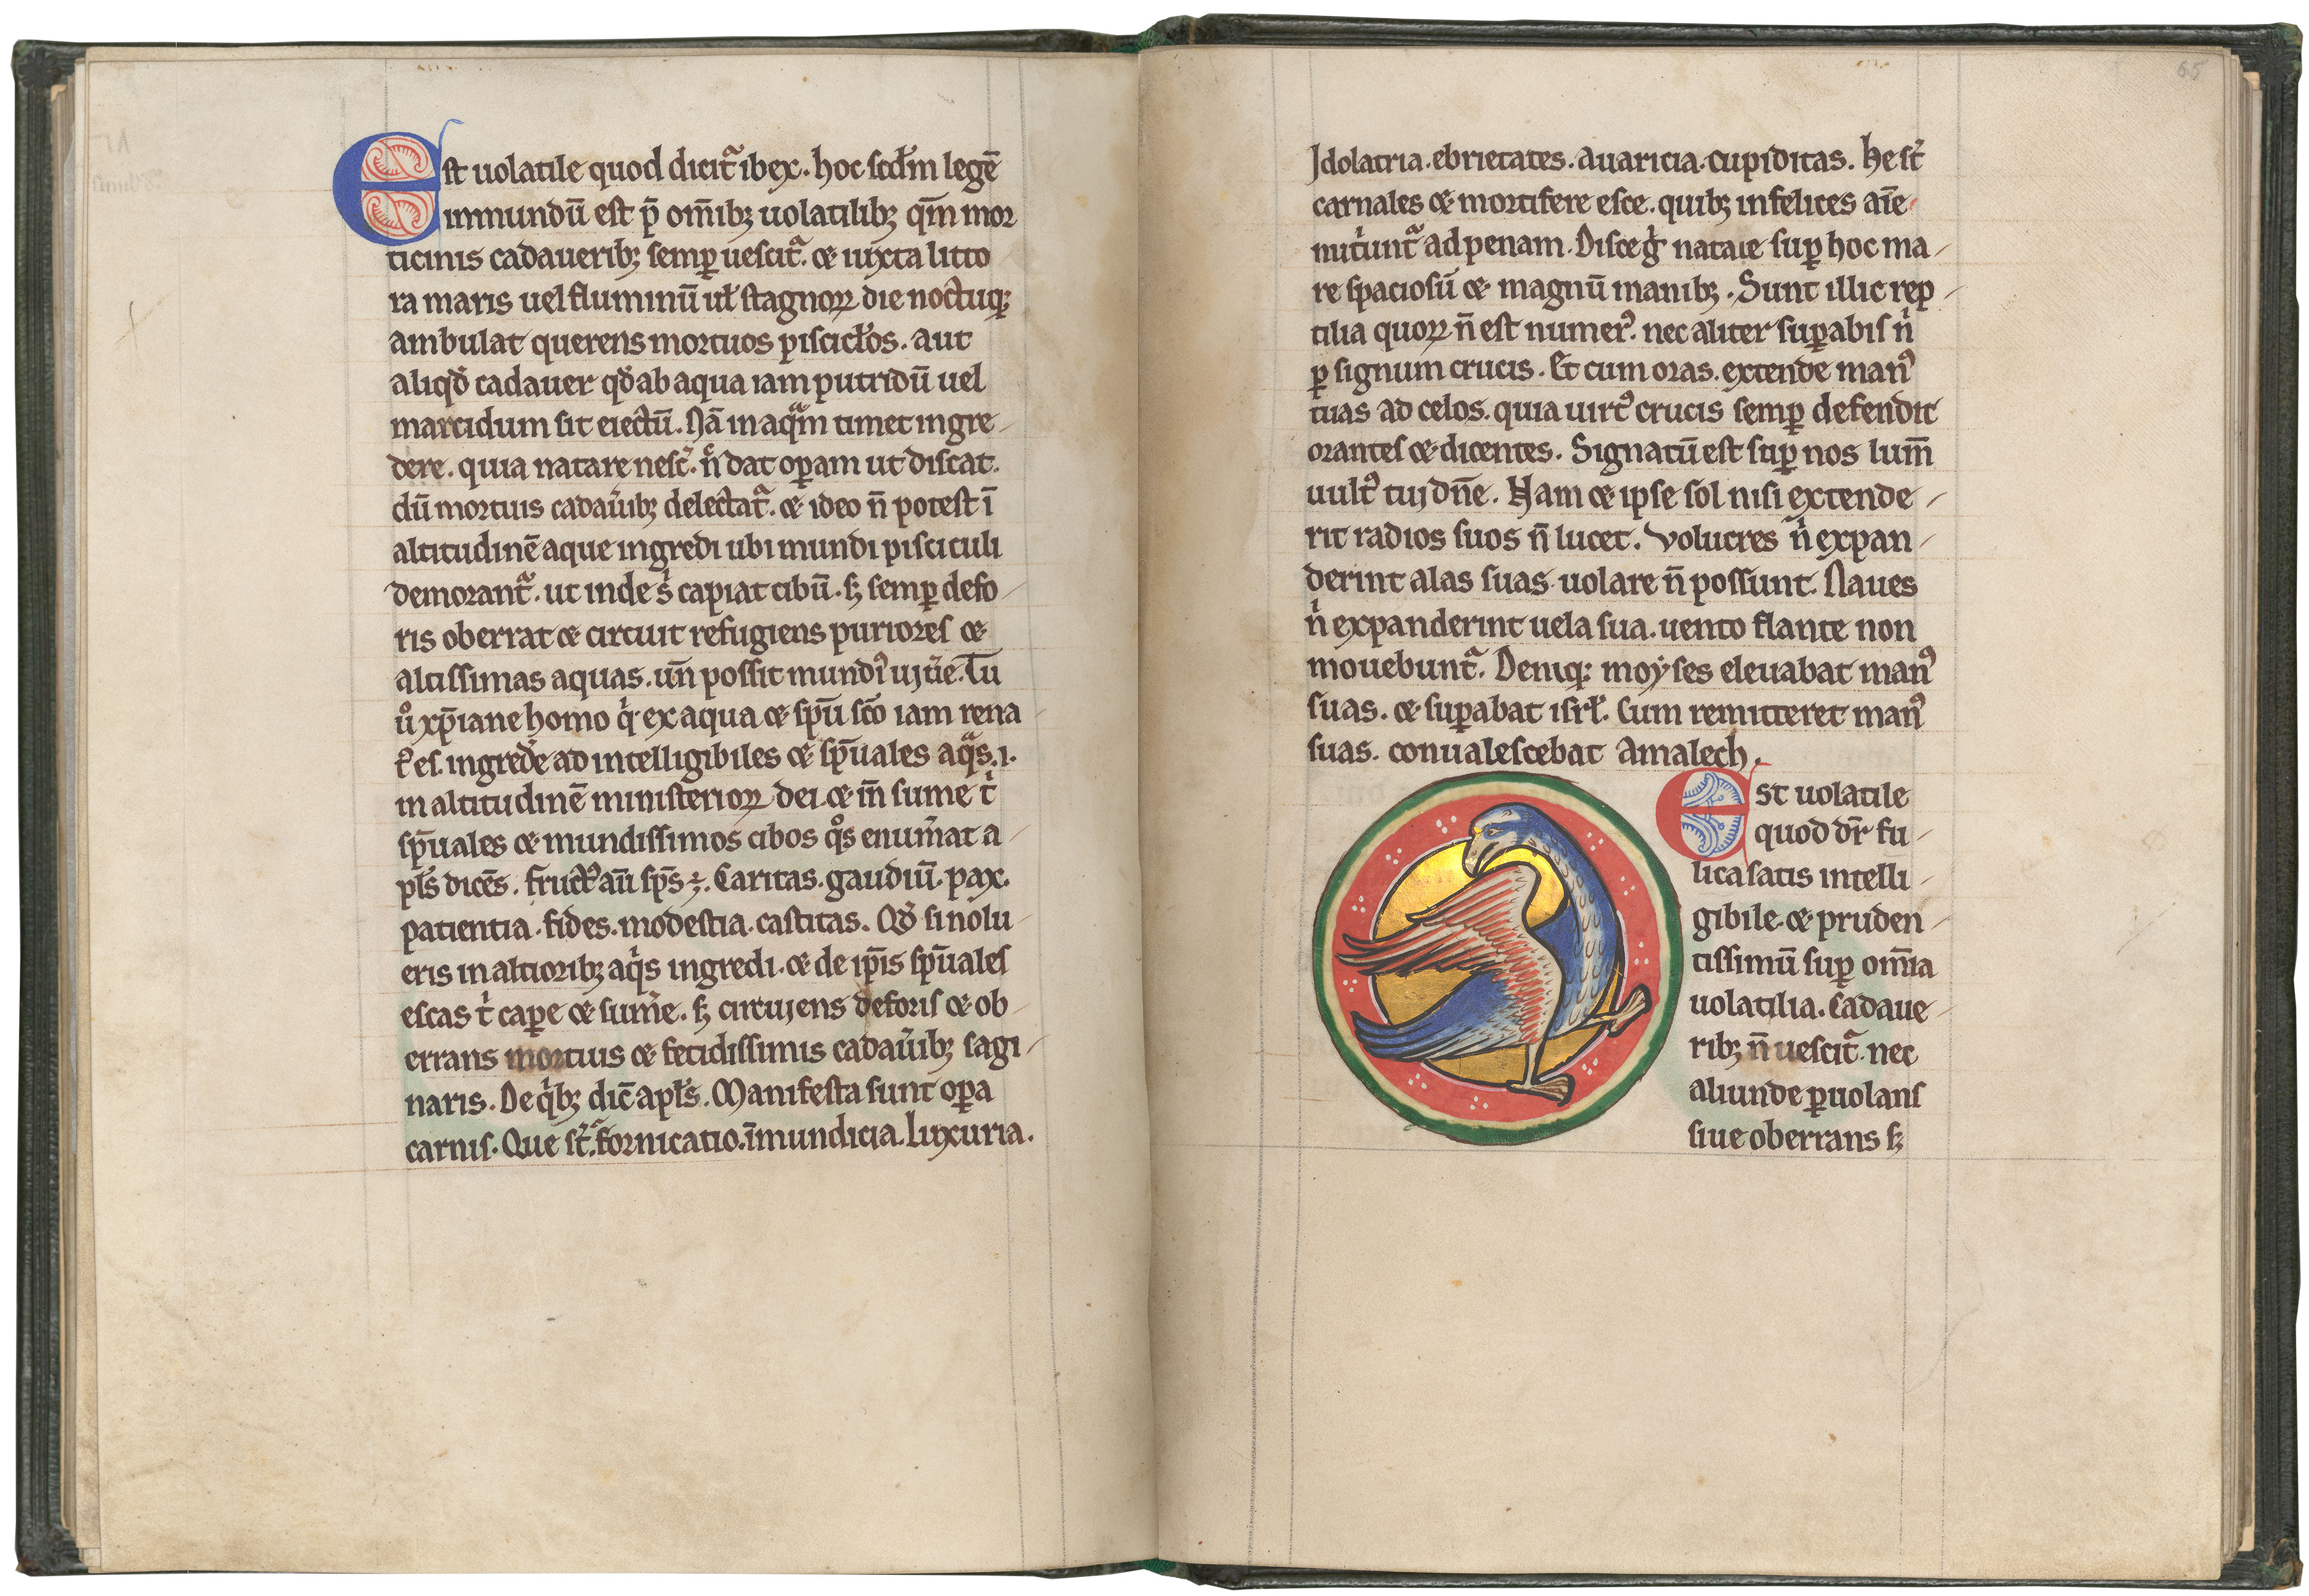 Est uolatile quod dicit᷑ ibex. hoc scdm̄ legē
inmundū est p̄ om̄ibꝫ uolatilibꝫ qm̄ mor
ticinis cadaueribꝫ semꝑ uescit᷑. ⁊ iuxta litto
ra maris uel fluminū ul̓ stagnoꝝ die noctuqꝫ
ambulat querens mortuos piscicl̓os. aut
aliqd̓ cadauer qd̓ ab aqua iam putridū uel
marcidum sit eiectū. Nā in aqᷓm timet ingre
dere. quia natare nesc̓. n̄ dat oꝑam ut discat.
dū mortuis cadau̓ibꝫ delectat᷑. ⁊ ideo n̄ potest ī
altitudinē aque ingredi ubi mundi pisciculi
demorant᷑. ut inde sͥ capiat cibū. sꝫ semꝑ defo
ris oberrat ⁊ circuit refugiens puriores ⁊
altissimas aquas. un̄ possit mundꝰ uiu̓e. Tu
uͦ xp̄iane homo qͥ ex aqua ⁊ sp̄u sc̄o iam rena
t̓ es. ingrede̓ ad intelligibiles ⁊ sp̄uales aqᷓs. .i.
in altitudinē ministerioꝝ dei. ⁊ in̄ sume tͥ
sp̄uales ⁊ mundissimos cibos qͦs enum̓at a
pl̓s dicēs. fructꝰ au̅ sp̄s ÷. Caritas. gaudiū. pax.
patientia. fides. modestia. castitas. Qd̓ si nolu
eris in altioribꝫ aqͥs ingredi. ⁊ de ip̄is sp̄uales
escas tͥ caꝑe ⁊ sum̓e. sꝫ circuiens deforis ⁊ ob
errans mortuis ⁊ fetidissimis cadau̓ibꝫ sagi
naris. De qͥbꝫ dic̄ apl̓s. Manifesta sunt oꝑa
carnis. Que st̓. fornicatio. īmundicia. luxuria.
65
Idolatria. ebrietates. auaricia. cupiditas. He st̓
carnales ⁊ mortifere esce. quibꝫ infelices aīe
nut̓unt᷑ ad penam. Disce gͦ natare suꝑ hoc ma
re spaciosū ⁊ magnū manibꝫ. Sunt illic rep
tilia quoꝝ n̄ est numerꝰ. nec aliter suꝑabis nͥ
ꝑ signum crucis. Et cum oras. extende manꝰ
tuas ad celos. quia uirtꝰ crucis semꝑ defendit
orantes ⁊ dicentes. Signatū est suꝑ nos lum̄
uultꝰ tui dn̄e. Nam ⁊ ipse sol nisi extende
rit radios suos n̄ lucet. Volucres nͥ expan
derint alas suas uolare n̄ possunt. Naues
nͥ expanderint uela sua. uento flante non
mouebunt᷑. Deniqꝫ moyses eleuabat manꝰ
suas. ⁊ suꝑabat isrl̓. Cum remitteret manꝰ
suas. conualescebat Amalech.
Est uolatile
quod dr̄ fu
lica satis intelli
gibile ⁊ pruden
tissimū suꝑ om̄ia
uolatilia. Cadaue
ribꝫ n̄ uescit᷑. nec
aliunde ꝑuolans
siue oberrans sꝫ